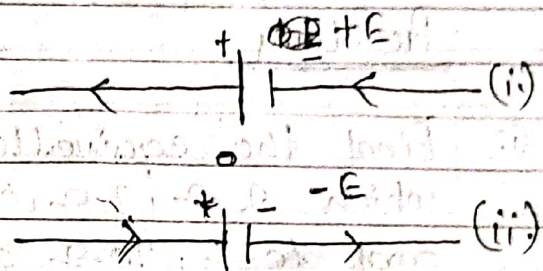 + +E
-
(i.)
+ - -E
(ii.)